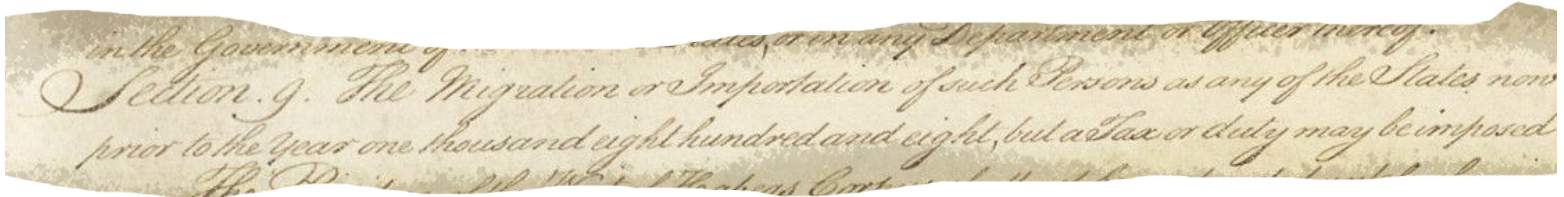 in the Government of States, or in any Department or Officer thereof.
Section. 9. The Migration or Importation of such Persons as any of the States now
prior to the Year one thousand eight hundred and eight, but a Tax or duty may be imposed
The Privilege of the Writ of Habeas Corpus